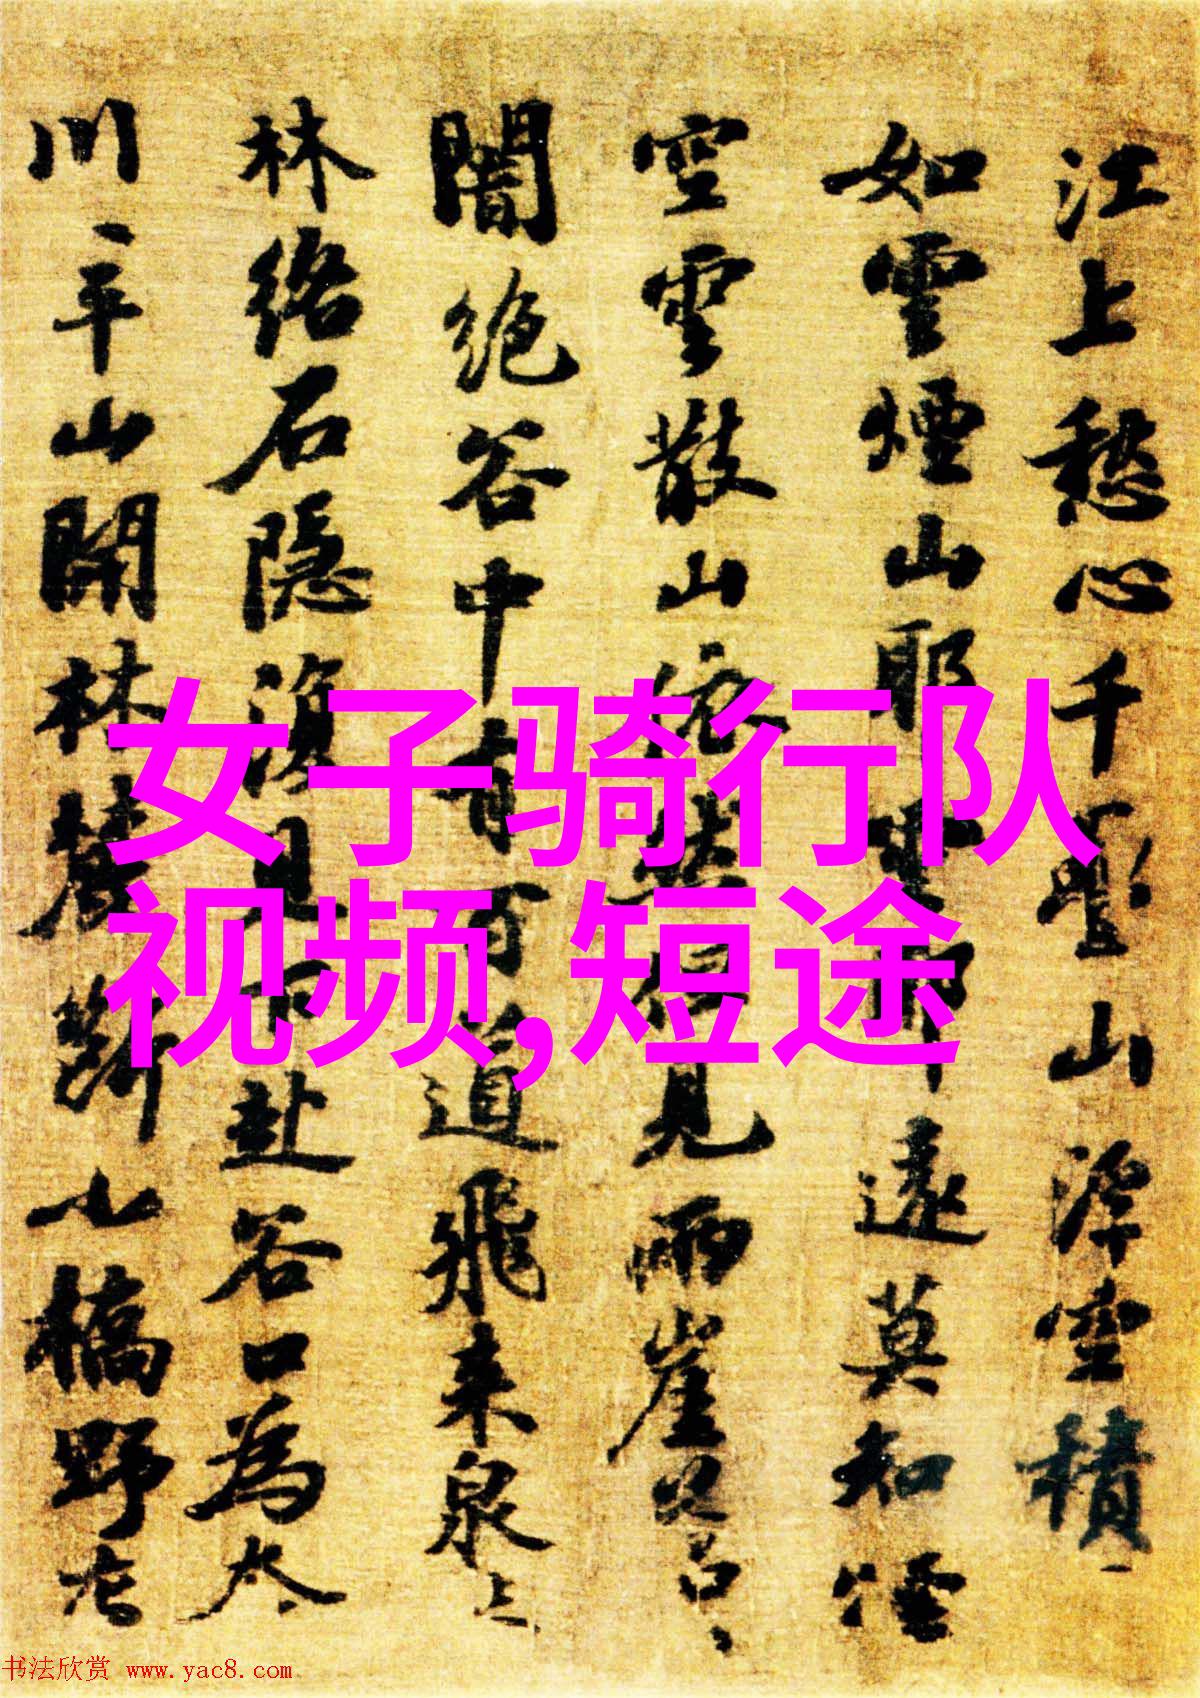 江上愁心千疊山浮空積
如雲煙山耶雲耶遠莫知煙
空雲散山依然但見兩崖蒼蒼
闇絕谷中有百道飛來泉
林絡石隱復見下赴谷口為
川平山開林麓斷小橋野
女子骑行队
视频,短途
书法欣赏 www.yac8.com